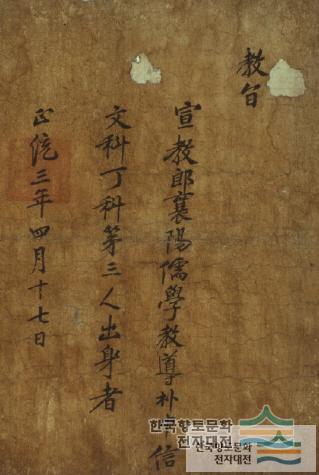 教旨
宣教郎襄陽儒學教導朴 信
文科丁科第三人出身者
正統三年四月十七日
한국향토문화
전자대전
한국향토문화
전자대전